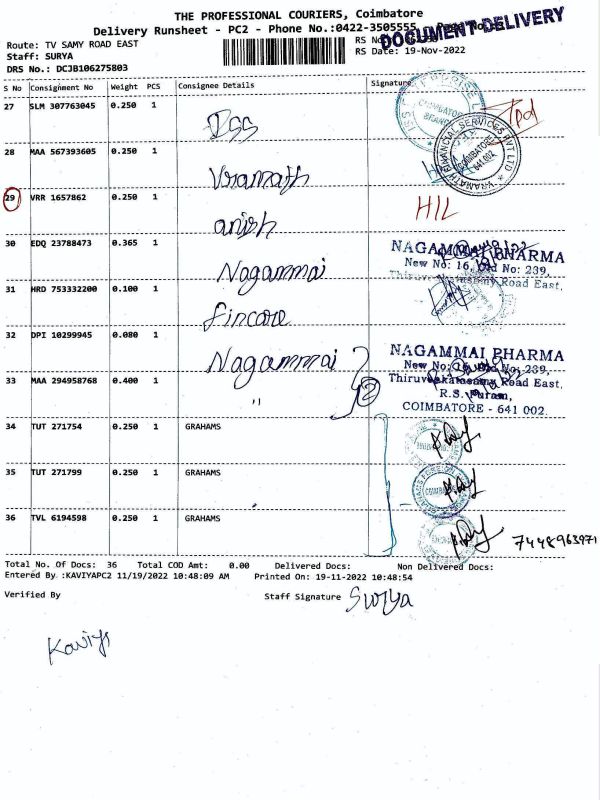 THE PROFESSIONAL COURIERS, Coimbatore
Delivery Runsheet - PC2 - Phone No.:0422-3505555
DOCUMENT DELIVERY
Route: TV SAMY ROAD EAST
Staff: SURYA
RS Date: 19-Nov-2022
DRS No.: DCJB106275803
S No Consignment No Weight PCS Consignee Details Signature
27 SLM 307763045 0.250 1 Dss
28 MAA 567393605 0.250 1 Vramath
VRAMATH FINANCIAL SERVICES PVT LTD COIMBATORE 641 002
29 VRR 1657862 0.250 1 anish HIL
30 EDQ 23788473 0.365 1 Nagammai
NAGAMMAI PHARMA
New No: 16, Old No: 239,
Thiruvenkatasamy Road East,
31 HRD 753332200 0.100 1 fincare
32 DPI 10299945 0.080 1 Nagammai
NAGAMMAI PHARMA
New No: 16, Old No: 239,
33 MAA 294958768 0.400 1 " 2
Thiruvenkatasamy Road East,
R.S. Puram,
COIMBATORE - 641 002.
34 TUT 271754 0.250 1 GRAHAMS
35 TUT 271799 0.250 1 GRAHAMS
36 TVL 6194598 0.250 1 GRAHAMS
7448963971
Total No. Of Docs: 36 Total COD Amt: 0.00 Delivered Docs: Non Delivered Docs:
Entered By :KAVIYAPC2 11/19/2022 10:48:09 AM Printed On: 19-11-2022 10:48:54
Verified By Staff Signature Surya
Kaviya